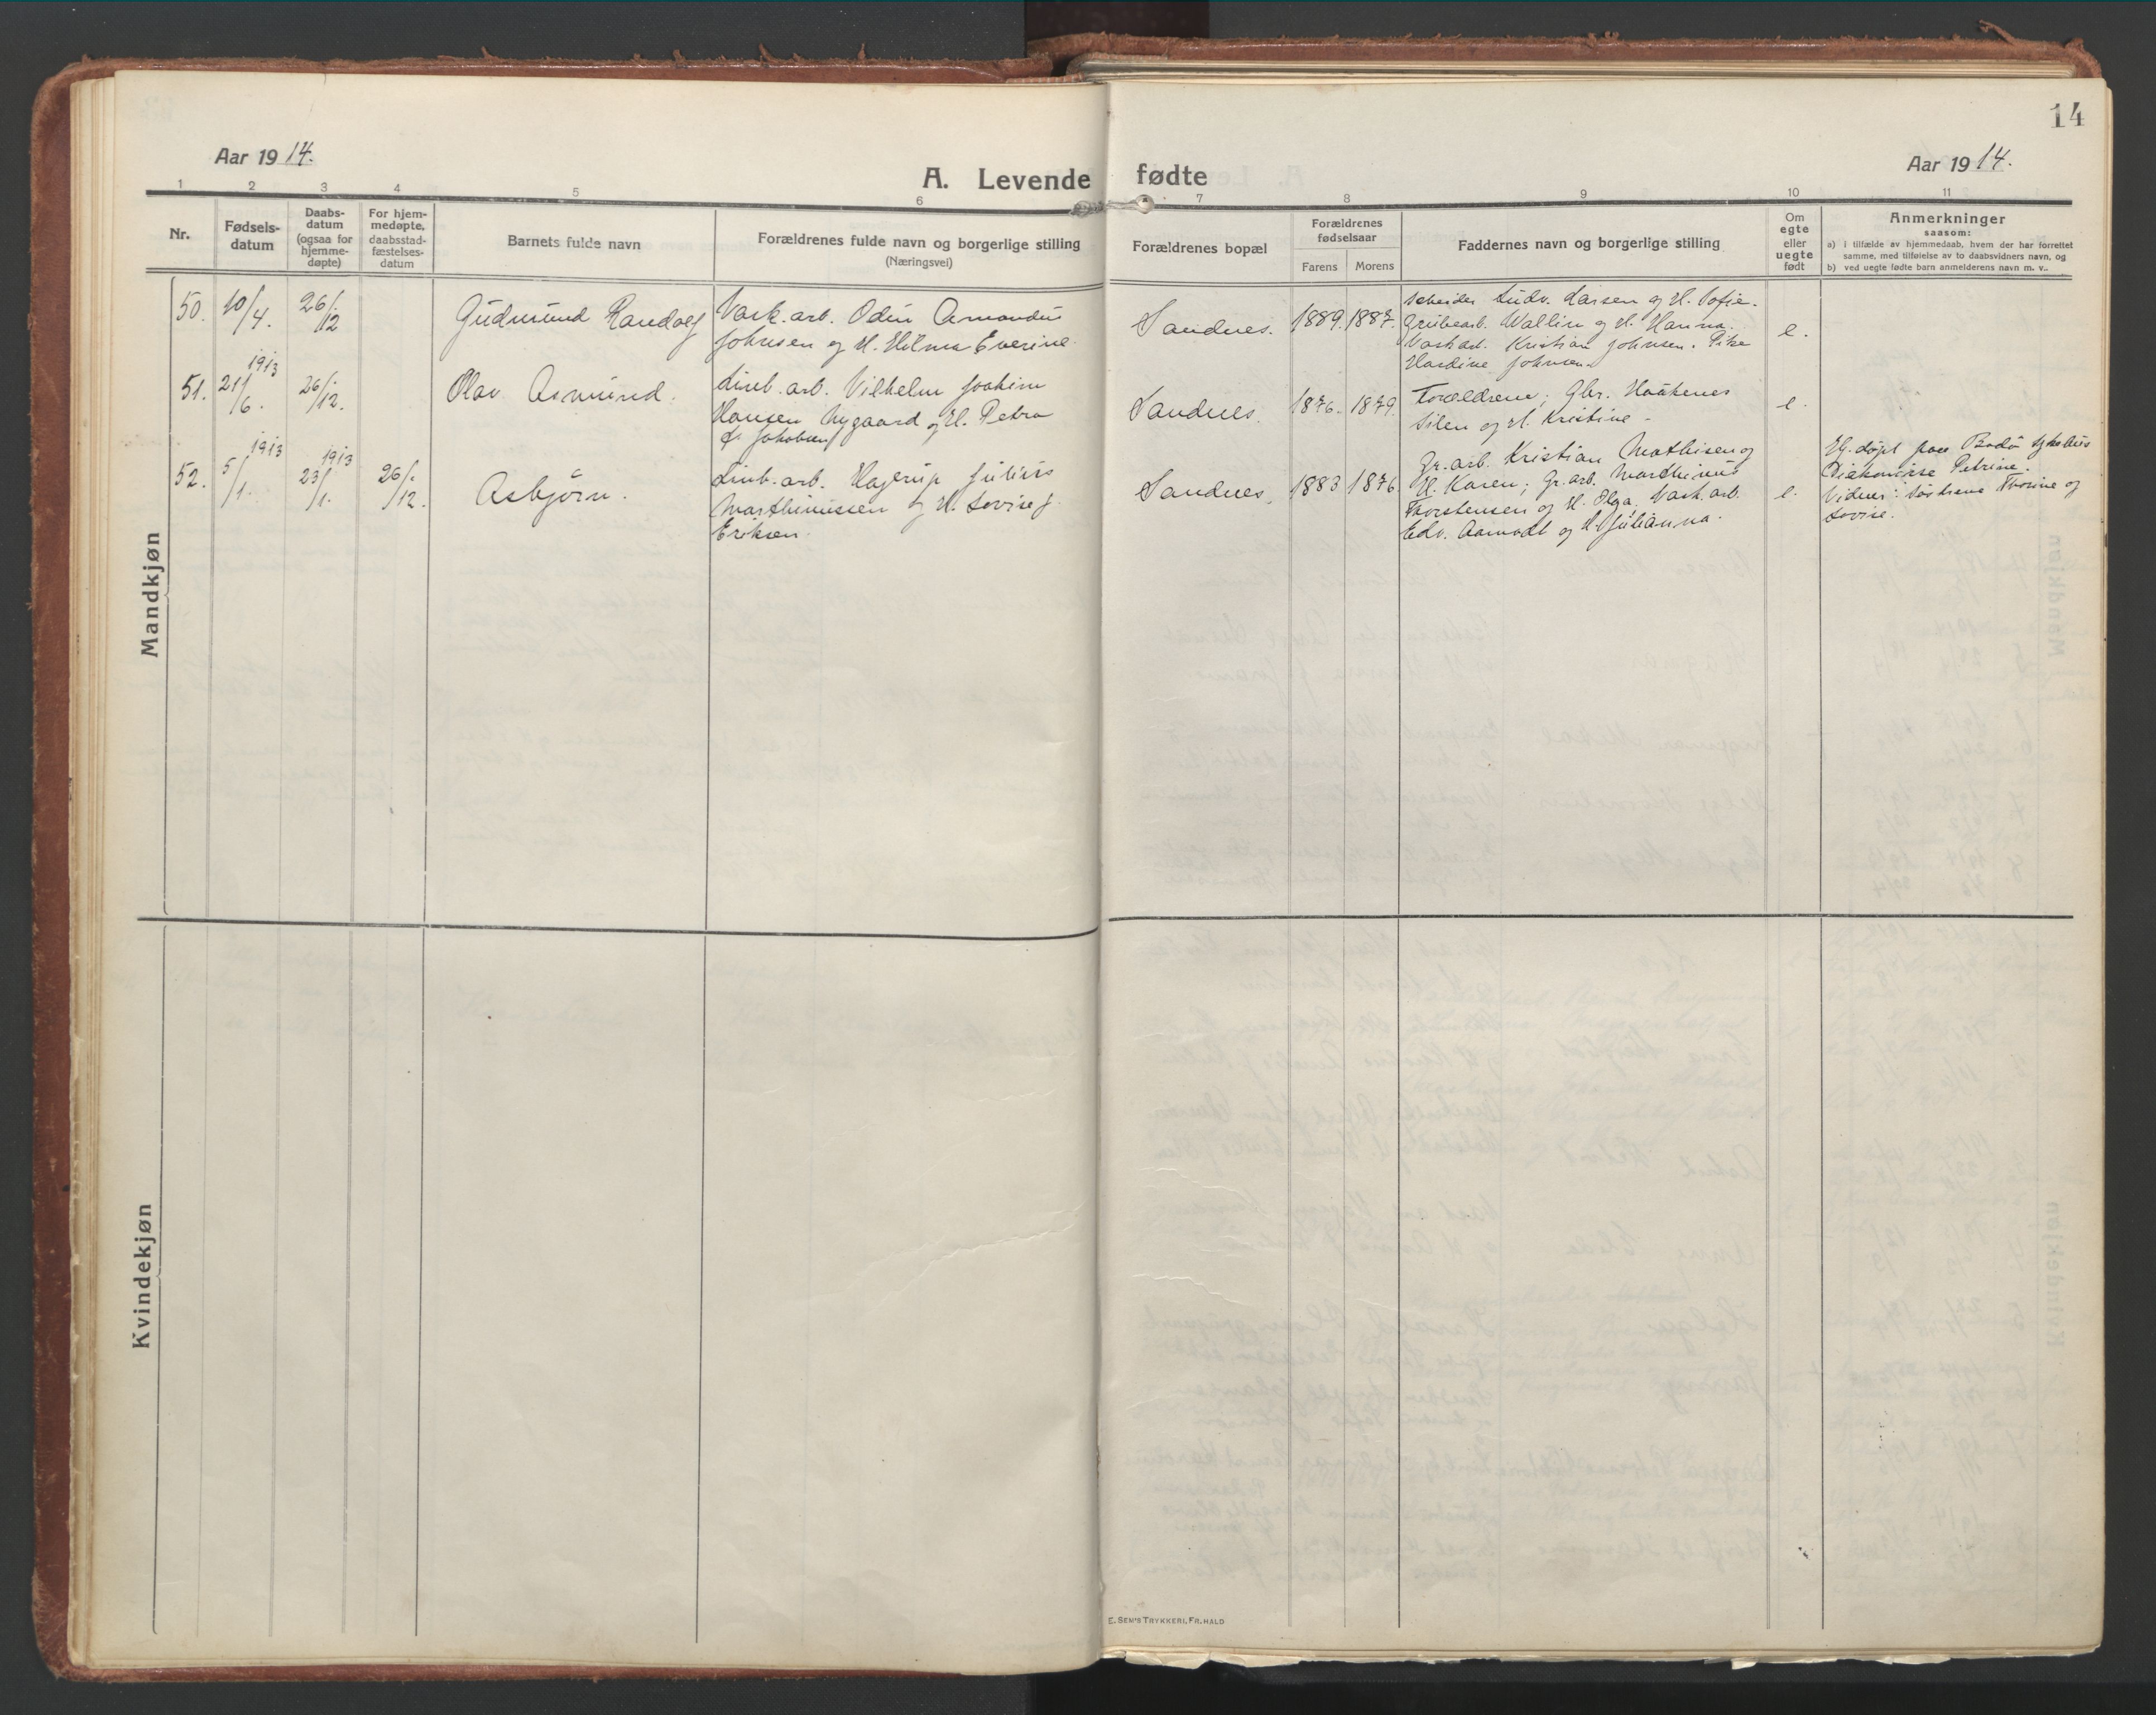 14
Aar 19 14.
Aar 19 14.
A. Levende fødte
1 2 3 4 5 6 7 8 9 10 11
Nr.
Fødsels-
datum
Daabs-
datum
(ogsaa for
hjemme-
døpte)
For hjem-
medøpte,
daabsstad-
fæstelses-
datum
Barnets fulde navn
Forældrenes fulde navn og borgerlige stilling
(Næringsvei)
Forældrenes bopæl
Forældrenes
fødselsaar
Farens Morens
Faddernes navn og borgerlige stilling
Om
egte
eller
uegte
født
Anmerkninger
saasom:
a) i tilfælde av hjemmedaab, hvem der har forrettet
samme, med tilføielse av to daabsvidners navn, og
b) ved uegte fødte barn anmelderens navn m. v..
Mandkjøn
50. 10/4. 26/12
Gudmund Randolf
Vask. arb. Odin Amandus
Johnsen og H. Hilma Everine
Sandnes. 1889. 1887.
Arbeider Ludv. Larsen og H. Sofie.
Grubearb. Wallin og H. Hanna.
Vaskarb. Kristian Johnsen. Pike
Hardine Johnsen.
e.
1913
51. 21/6. 26/12.
Olav Asmund.
Linb. arb. Vilhelm Joakim
Hansen Nygaard og H. Petra
f. Jakobsen
Sandnes. 1876. 1879.
Forældrene; Gbr. Haakenes
Silen og H. Kristine
e.
1913 1913
52. 5/1. 23/1. 26/12.
Asbjørn.
Linb. arb. Hagerup Julius
Marthinussen og H. Lovise f.
Eriksen
Sandnes, 1883 1876
Gr. arb. Kristian Mathisen og
H. Karen; Gr. arb. Mardhinus
Thorstensen og H. Olga. Vask. arb.
Edv. Aamodt og H. Julianna.
e.
Hj. døpt paa Bodø sykehus
Diakonisse Petrine.
Vidner: Søstrene Thorine og
Lovise.
Kvindekjøn
E. SEM'S TRYKKERI, FR. HALD